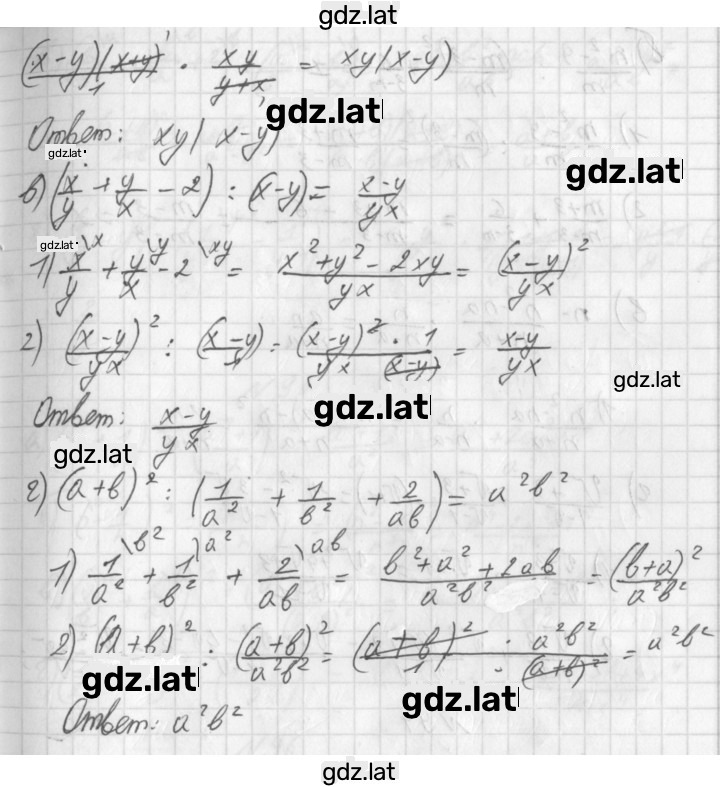 gdz.lat
(x-y)(x+y)/1 · xy/(y+x) = xy(x-y)
gdz.lat
Ответ: xy(x-y)
gdz.lat
gdz.lat
в) (x/y + y/x - 2) : (x-y) = (x-y)/yx
gdz.lat
1) x/y \x + y/x \y - 2 \xy = (x²+y²-2xy)/yx = (x-y)²/yx
2) (x-y)²/yx : (x-y)/1 = (x-y)²·1/yx (x-y) = (x-y)/yx
gdz.lat
gdz.lat
Ответ: (x-y)/yx
gdz.lat
г) (a+b)² : (1/a² + 1/b² + 2/ab) = a²b²
1) 1/a² \b² + 1/b² \a² + 2/ab \ab = (b²+a²+2ab)/a²b² = (b+a)²/a²b²
2) (a+b)² : (a+b)²/a²b² = (a+b)²/1 · a²b²/(a+b)² = a²b²
gdz.lat
gdz.lat
Ответ: a²b²
gdz.lat